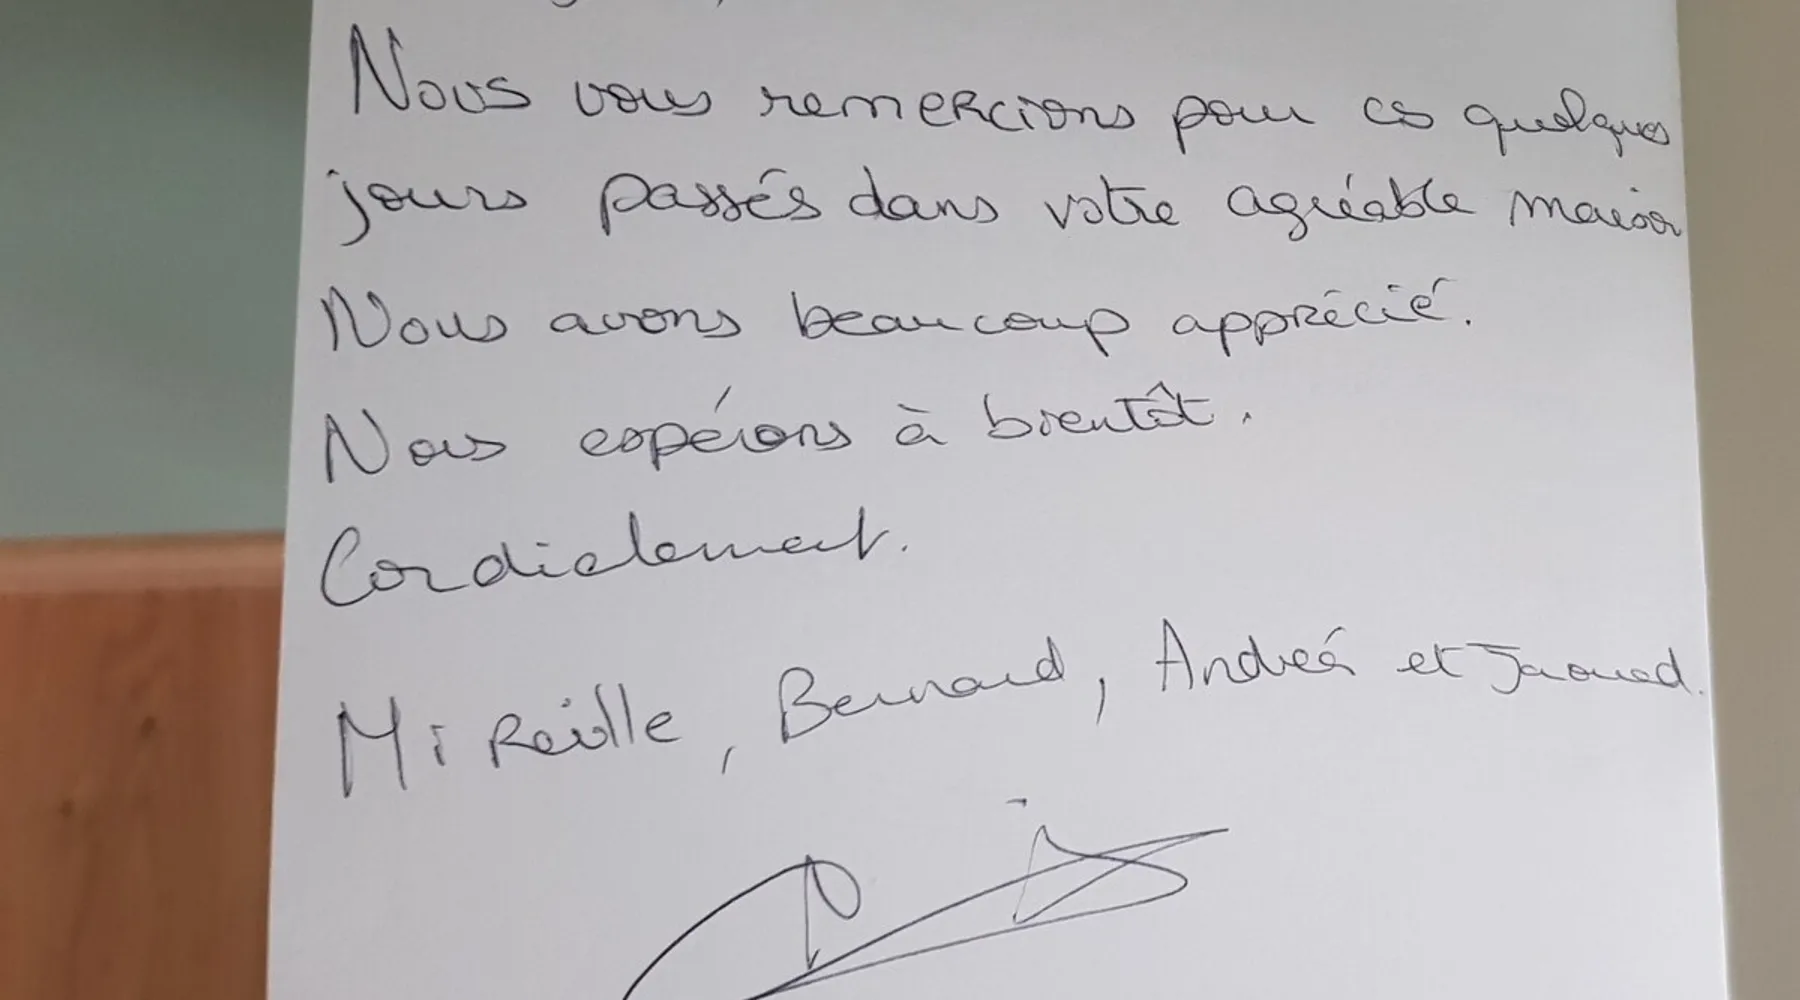 Nous vous remercions pour ces quelques
jours passés dans votre agréable maison
Nous avons beaucoup apprécié.
Nous espérons à bientôt.
Cordialement.
Mireille, Bernard, Andreá et Jaouad.